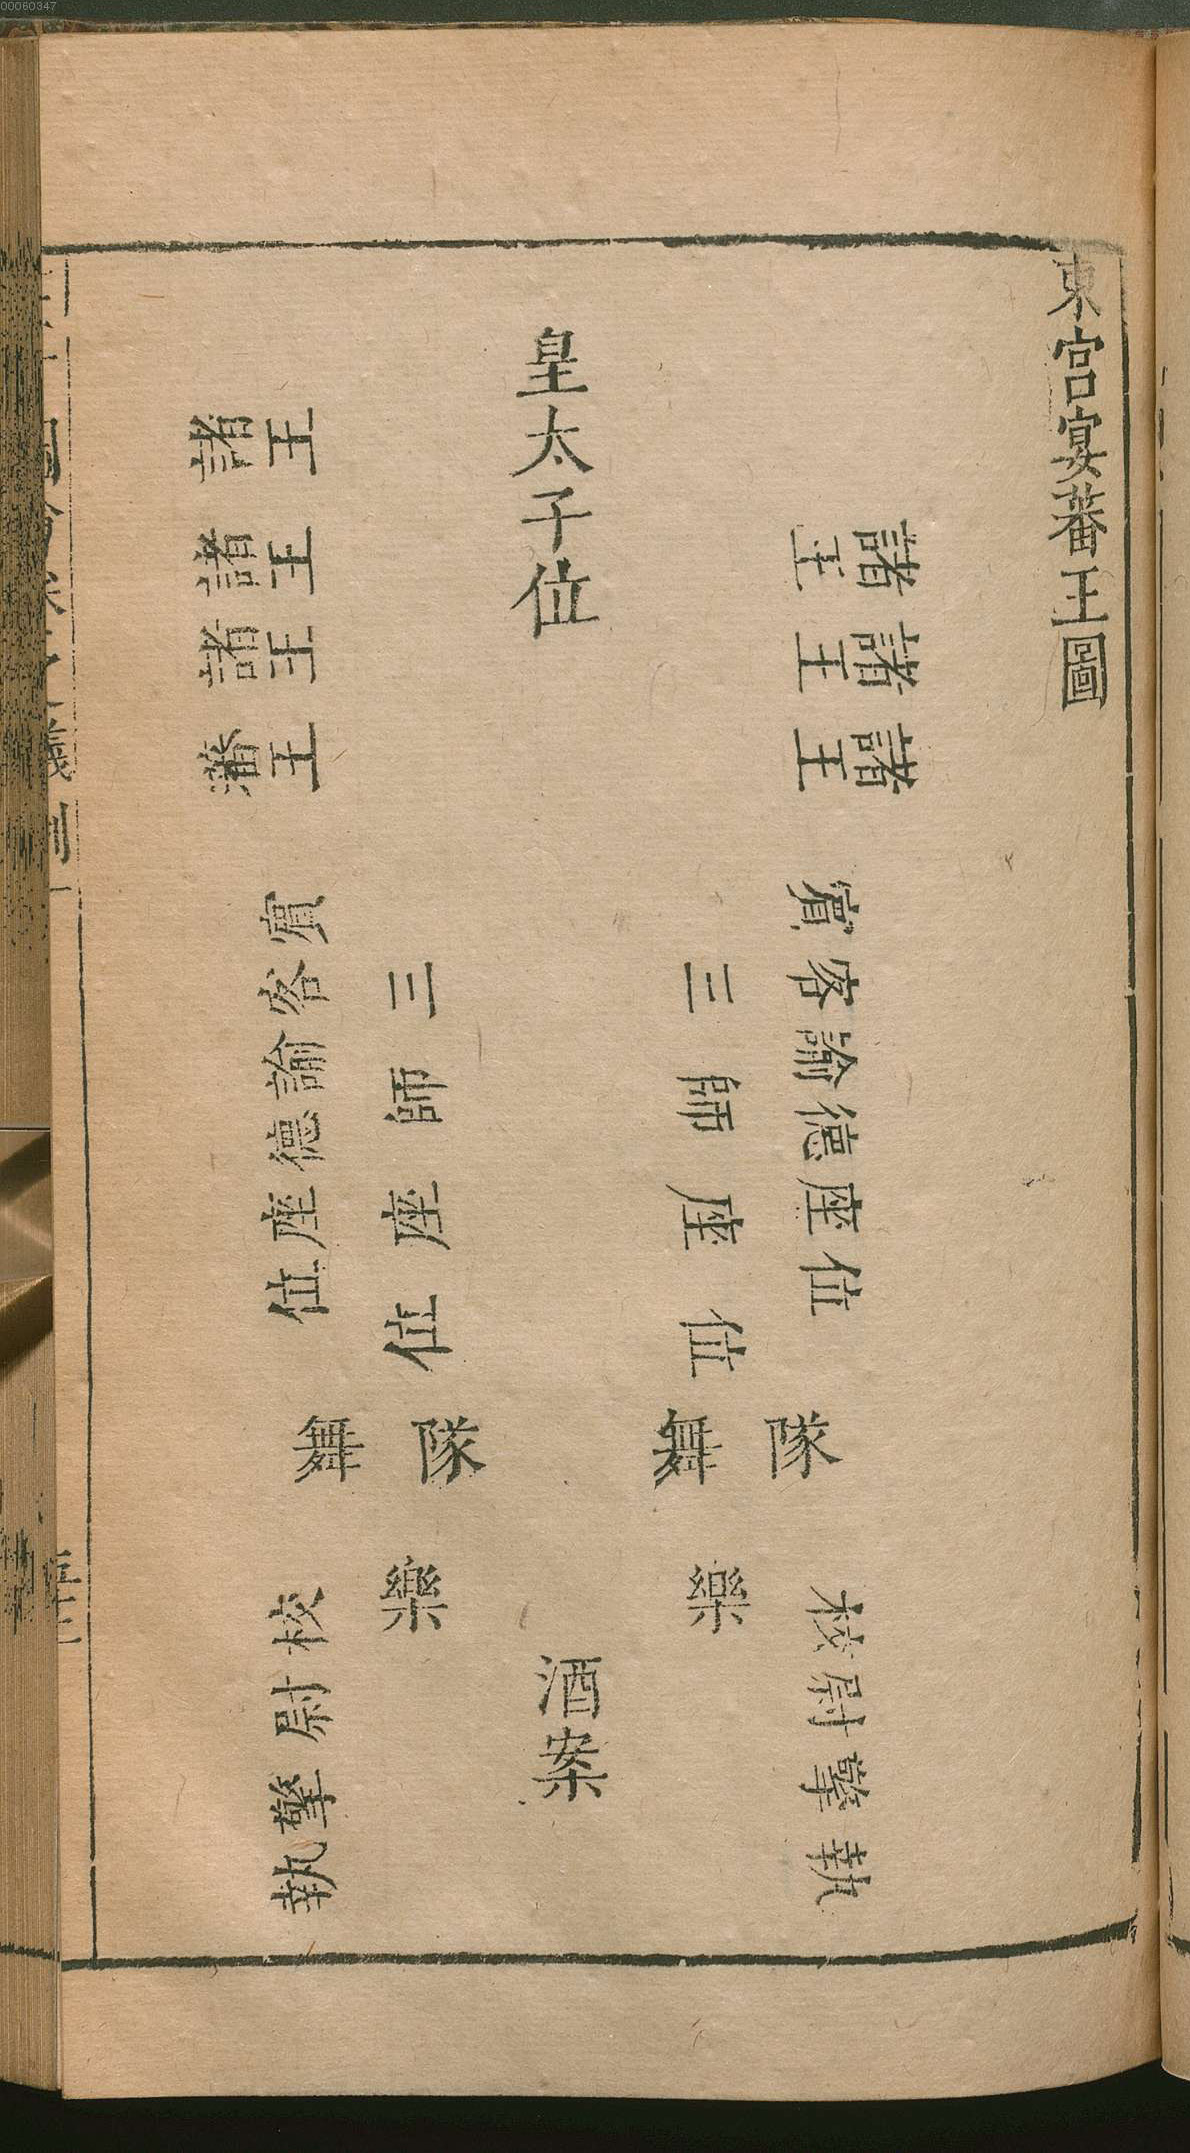 00060347
東宮宴蕃王圖
皇太子位
諸王
諸王
諸王
諸王
諸王
諸王
藩王
賓客諭德座位
三師座位
三師座位
賓客諭德座位
舞隊
舞隊
樂
樂
酒案
校尉擎執
校尉擎執